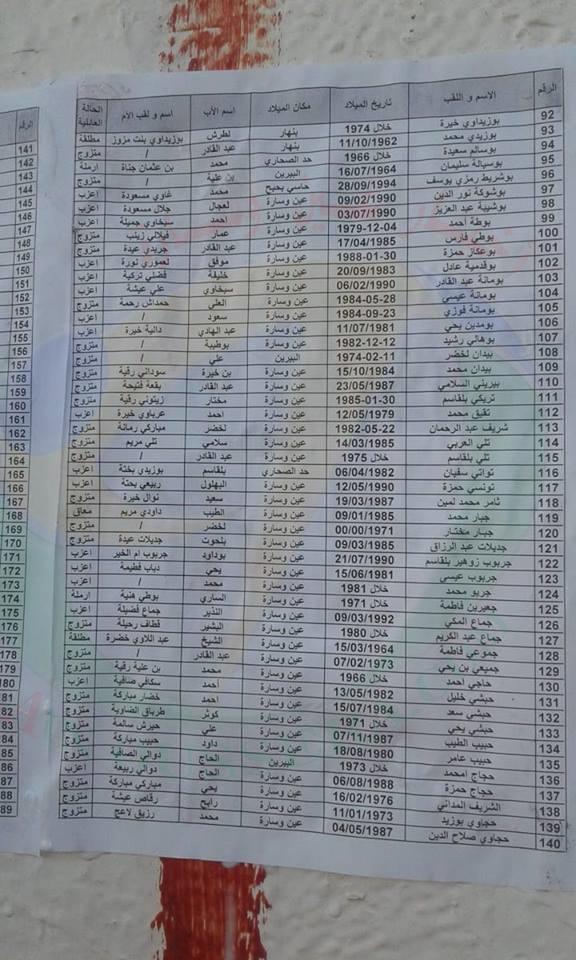 الرقم الاسم و اللقب تاريخ الميلاد مكان الميلاد اسم الأب اسم و لقب الام الحالة العائلية
92 بوزيداوي خيرة خلال 1974 بنهار لطرش بوزيداوي بنت مزوز مطلقة
93 بوزيدي محمد 11/10/1962 بنهار عبد القادر / متزوج
94 بوسالم سعيدة خلال 1966 حد الصحاري محمد بن عثمان جناة ارملة
95 بوسيالة سليمان 16/07/1964 البيرين بن علية / متزوج
96 بوشريط رمزي يوسف 28/09/1994 حاسي بحبح محمد غاوي مسعودة اعزب
97 بوشوكة نور الدين 09/02/1990 عين وسارة لعجال جلال مسعودة اعزب
98 بوشيبة عبد العزيز 03/07/1990 عين وسارة احمد سبخاوي جميلة اعزب
99 بوطة أحمد 1979-12-04 عين وسارة عمار فيلالي زينب متزوج
100 بوطي فارس 17/04/1985 عين وسارة عبد القادر جريدي عيدة متزوج
101 بوعكاز حمزة 1988-01-30 عين وسارة موفق لعموري نورة اعزب
102 بوقدمية عادل 20/09/1983 عين وسارة خليفة فضلي تركية اعزب
103 بومانة عبد القادر 06/02/1990 عين وسارة سبخاوي علي عيشة اعزب
104 بومانة عيسى 1984-05-28 عين وسارة العلي حمداش رحمة متزوج
105 بومانة فوزي 1984-09-23 عين وسارة سعود / اعزب
106 بومدين يحي 11/07/1981 عين وسارة عبد الهادي دالية خيرة اعزب
107 بوهالي رشيد 1982-12-12 عين وسارة بوطيبة / متزوج
108 بيدان لخضر 1974-02-11 البيرين علي / متزوج
109 بيدان محمد 15/10/1984 عين وسارة بن خيرة سوداني رقية متزوج
110 بيريني السلامي 23/05/1987 عين وسارة عبد القادر بقعة فتيحة متزوج
111 تريكي بلقاسم 1985-01-30 عين وسارة مختار زيتوني رقية متزوج
112 تقيق محمد 12/05/1979 عين وسارة احمد عرباوي خيرة اعزب
113 شريف عبد الرحمان 1982-05-22 عين وسارة لخضر مباركي رمانة متزوج
114 تلي العربي 14/03/1985 عين وسارة سلامي تلي مريم متزوج
115 تلي بلقاسم خلال 1975 عين وسارة عبد القادر / متزوج
116 تواتي سفيان 06/04/1982 حد الصحاري بلقاسم بوزيدي بختة اعزب
117 تونسي حمزة 12/05/1990 عين وسارة البهلول ربيعي بختة اعزب
118 ثامر محمد لمين 19/03/1987 عين وسارة سعيد نوال خيرة متزوج
119 جبار محمد 09/01/1985 عين وسارة الطيب داودي مريم معاق
120 جبار مختار 00/00/1971 عين وسارة لخضر / متزوج
121 جديلات عبد الرزاق 09/03/1985 عين وسارة بلحوت جديلات عيدة متزوج
122 جربوب زوهير بلقاسم 21/07/1990 عين وسارة بوداود جربوب ام الخير اعزب
123 جربوب عيسى 15/06/1981 عين وسارة يحي دباب فطيمة اعزب
124 جريو محمد خلال 1981 عين وسارة محمد / متزوج
125 جعيرين فاطمة خلال 1971 عين وسارة الساري بوطي هنية ارملة
126 جماع المكي 09/03/1992 عين وسارة النذير جماع فضيلة اعزب
127 جماع عبد الكريم خلال 1980 عين وسارة البشير قطاف رحيلة متزوج
128 جموعي فاطمة 15/03/1964 عين وسارة الشيخ عبد اللاوي خضرة مطلقة
129 جميعي بن يحي 07/02/1973 عين وسارة عبد القادر / متزوج
130 حاجي احمد خلال 1966 عين وسارة محمد بن علية رقية متزوج
131 حبشي خليل 13/05/1982 عين وسارة أحمد سكافي صافية اعزب
132 حبشي سعد 15/07/1984 عين وسارة احمد خضار مباركة متزوج
133 حبشي يحي خلال 1971 عين وسارة كوثر طرباق الضاوية متزوج
134 حبيب الطيب 07/11/1987 عين وسارة علي حبرش سالمة متزوج
135 حبيب عامر 18/08/1980 عين وسارة داود حبيب مباركة متزوج
136 حجاج امحمد خلال 1973 البيرين الحاج دوالي الصافية متزوج
137 حجاج حمزة 06/08/1988 عين وسارة الحاج دوالي ربيعة اعزب
138 الشريف المداني 16/02/1976 عين وسارة يحي مباركي مباركة متزوج
139 حجاوي بوزيد 11/01/1973 عين وسارة رابح رقاص عيشة متزوج
140 حجاوي صلاح الدين 04/05/1987 عين وسارة محمد رزيق لاعج متزوج
الرقم
141
142
143
144
145
146
147
148
149
150
151
152
153
154
155
156
157
158
159
160
161
162
163
164
165
166
167
168
169
170
171
172
173
174
175
176
177
178
179
180
81
82
83
84
85
86
87
88
89